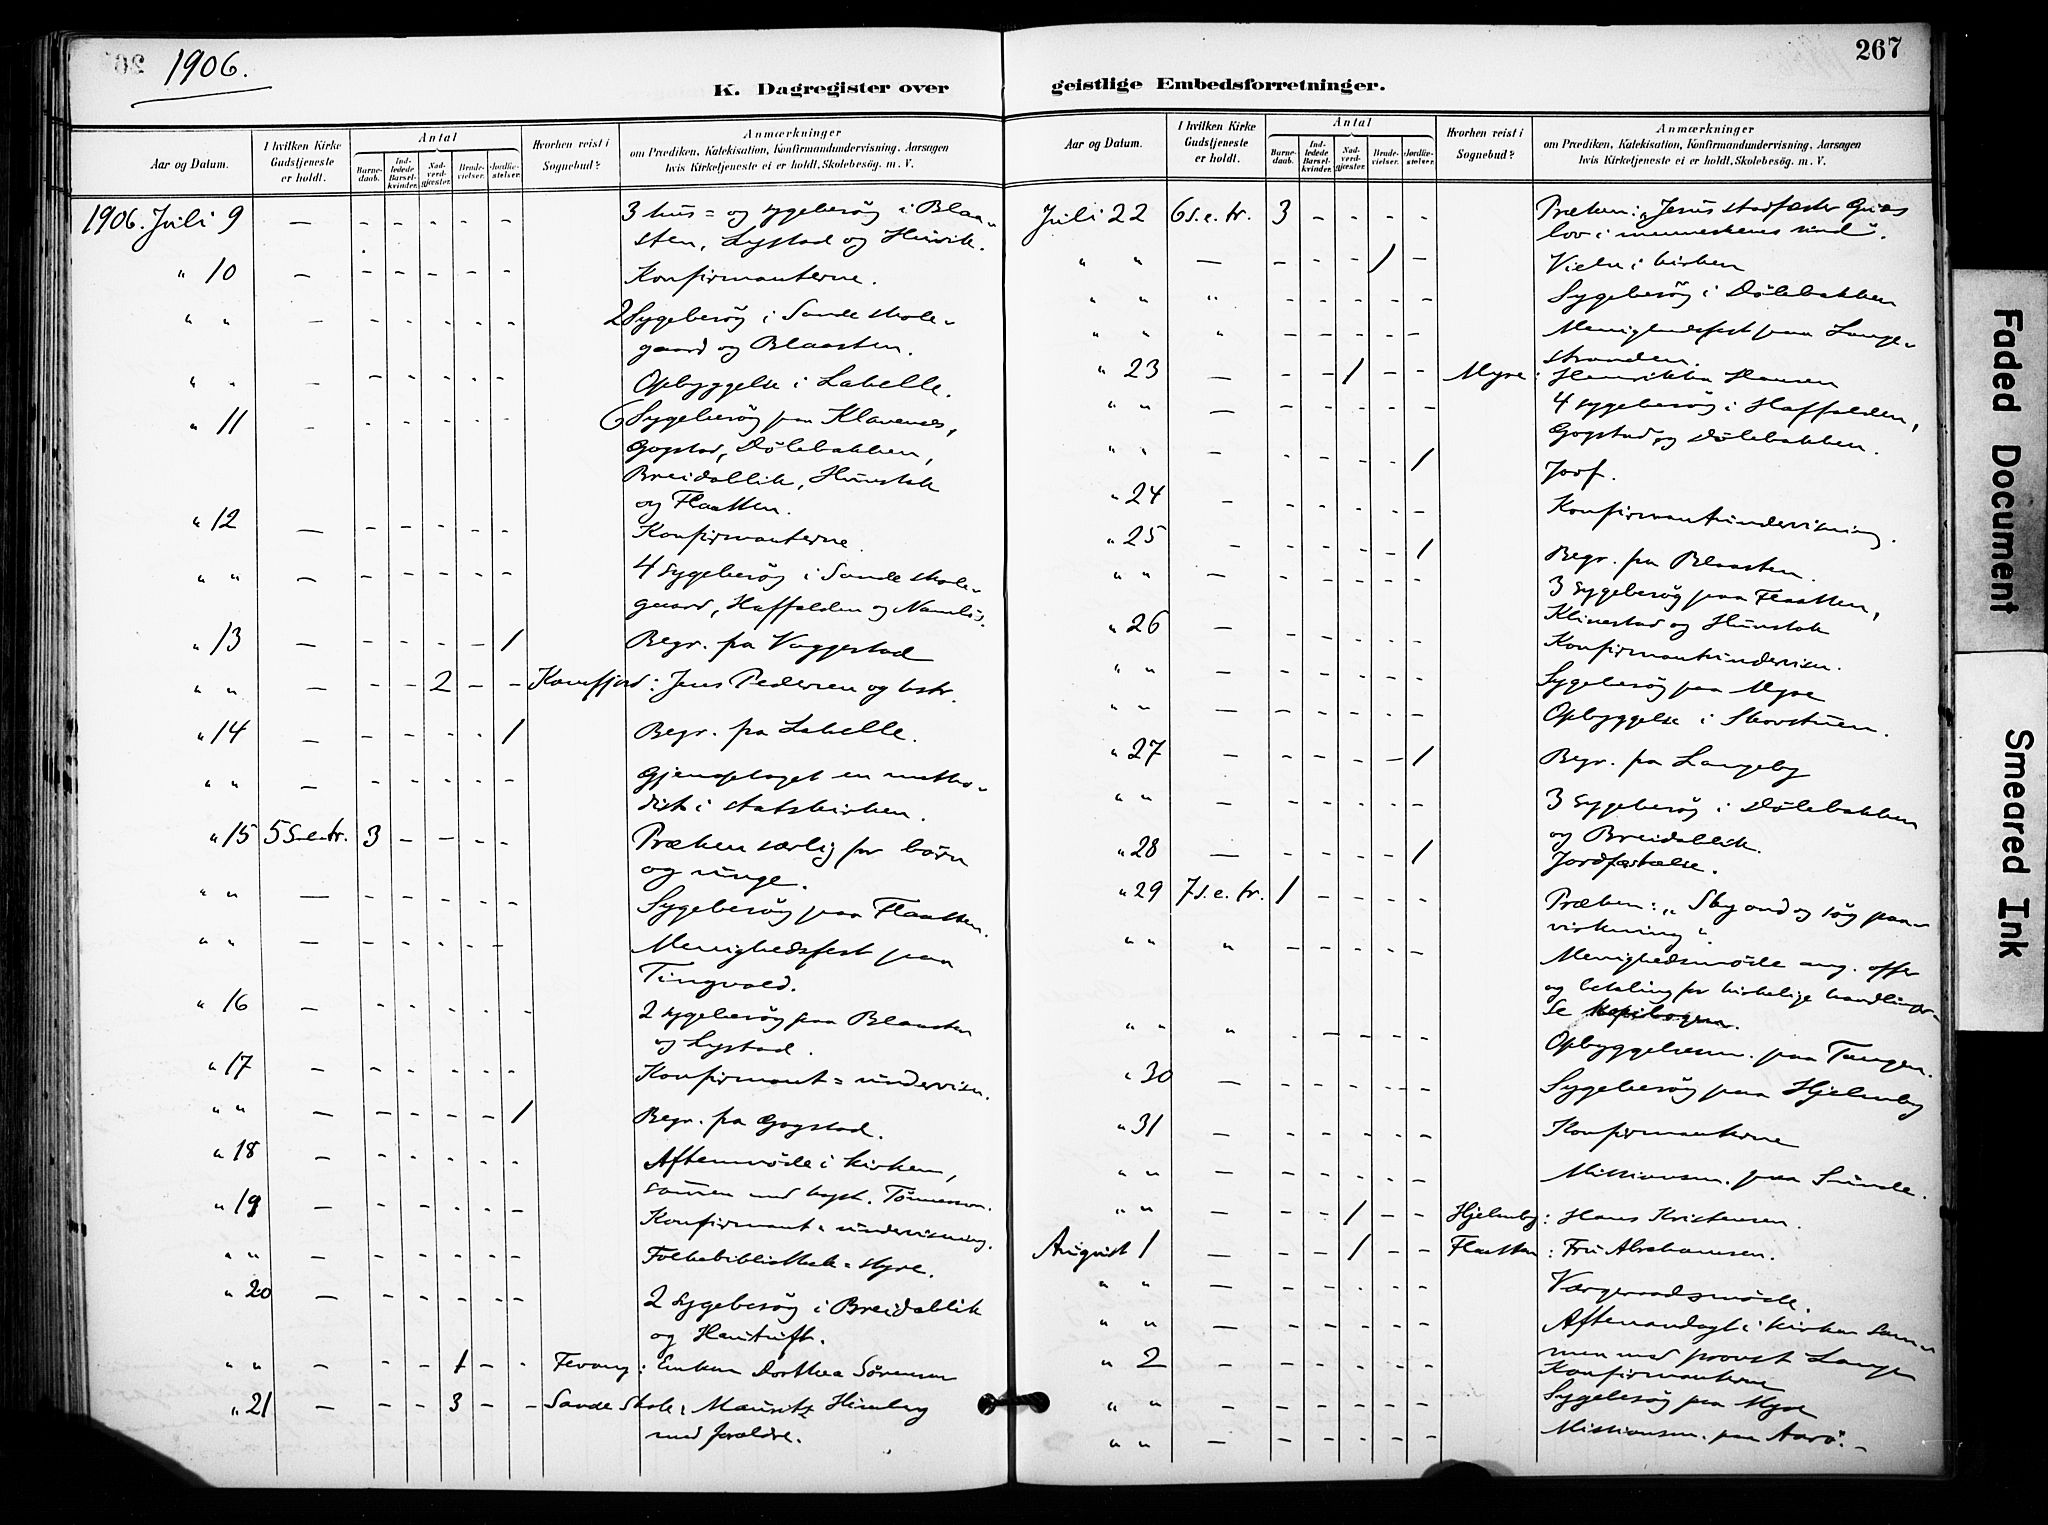 1906.
K. Dagregister over
Aar og Datum.
I hvilken Kirke Gudstjeneste er holdt.
Antal
Barnedaab.
Indledede Barselkvinder.
Nadverdgjæster.
Brudevielser.
Jordfæstelser.
Hvorhen reist i Sognebud?
Anmærkninger
om Prædiken, Katekisation, Konfirmandundervisning, Aarsagen
hvis Kirketjeneste ei er holdt, Skolebesøg. m. V.
1906. Juli 9 — 3 hus= og sygebesøg i Blaa-
sten, Lystad og Huvik.
" 10 — - - - - - Konfirmanterne.
" " — - - - - - 2 Sygebesøg i Sande skole-
gaard og Blaasten.
" " — - - - - - Opbyggelse i Labelle.
" 11 - - - - - - 6 Sygebesøg paa Klavenes,
Gogstad, Dölebakken,
Breidablik, Hunstok
og Flaatten.
" 12 — - - - - - Konfirmanterne.
" " — - - - - - 4 sygebesøg i Sande skole-
gaard, Haffalden og
" 13 — - - - - 1 Begr. fra Vaggestad
" " — - - 2 - - Kamfjord: Jens Pedersen og hstr.
" 14 — - - - - 1 Begr. fra Labelle.
" " — - - - - - Gjenoptaget en metho-
dist i statskirken.
" 15 5 S.e.tr. 3 - - - - Præken særlig for børn
og unge.
" " — - - - - - Sygebesøg paa Flaatten.
" " — - - - - - Menighedsfest paa
Tingvold.
" 16 — - - - - - 2 sygebesøg paa Blaasten
og Lystad.
" 17 — - - - - - Konfirmant = undervisn.
" " — - - - - 1 Begr. fra Gogstad.
" 18 — - - - - - Aftenmøde i kirken,
sammen med Tønnesson.
" 19 — - - - - - Konfirmant = undervisning.
" " — - - - - - Folkebibliothek = styre.
" 20 — - - - - - 2 Sygebesøg i Breidablik
og
" " — - - 1 - - Fevang: Enken Dorthea Sørensen
" 21 — - - 3 - - Sande Skole: Mauritz Himberg
med forældre.
267
geistlige Embedsforretninger.
Aar og Datum.
I hvilken Kirke Gudstjeneste er holdt.
Antal
Barnedaab.
Indledede Barselkvinder.
Nadverdgjæster.
Brudevielser.
Jordfæstelser.
Hvorhen reist i Sognebud?
Anmærkninger
om Prædiken, Katekisation, Konfirmandundervisning, Aarsagen
hvis Kirketjeneste ei er holdt, Skolebesøg. m. V.
Juli 22 6 S.e.tr. 3 - - - - Præken: "Jesus stadfæster Guds
lov i menneskenes sind".
" " — - - - 1 - Vielse i kirken
" " " - - - - - Sygebesøg i Dölebakken
" " " - - - - - Menighedsfest paa Lange-
stranden.
" 23 — - - 1 - - Myre: Henrikka Hansen
" " — - - - - - 4 sygebesøg i Haffalden,
Gogstad og Dölebakken.
" " - - - - - 1 Jordf.
" 24 - - - - - - Konfirmantundervisning.
" 25 - - - - - 1 Begr. fra Blaasten.
" " — - - - - - 3 Sygebesøg paa Flaatten,
Klinestad og Hunstok
" 26 — - - - - - Konfirmantundervisn.
" " — - - - - - Sygebesøg paa Myre
" " — - - - - - Opbyggelse i Skovstuen.
" 27 — - - - - 1 Begr. fra Langeby
" " — - - - - - 3 Sygebesøg i Dölebakken
og Breidablik.
" 28 — - - - - 1 Jordfæstelse.
" 29 7 S.e.tr. 1 - - - - Præken: "Sky ond og søg paa-
virkning".
" " " - - - - - Menighedsmøde ang. offer
og betaling for kirkelige handlinger.
Se kopibogen.
" " " - - - - - Opbyggelsesm. paa Tangen.
" 30 — - - - - - Sygebesøg paa Hjelmby
" 31 — - - - - - Konfirmanterne
" " — - - - - - Missionsm. paa Sunde.
" " — - - 1 - - Hjelmby: Hans Kristensen.
August 1 — - - 1 - - Flaatten: Fru Abrahamsen.
" " — - - - - - Værgeraadsmøde.
" " — - - - - - Aftenandagt i kirken sam-
men med provst Lange
" 2 — - - - - - Konfirmanterne
" " — - - - - - Sygebesøg paa Myre
" " — - - - - - Missionsm. paa Aarø.
Faded Document
Smeared Ink